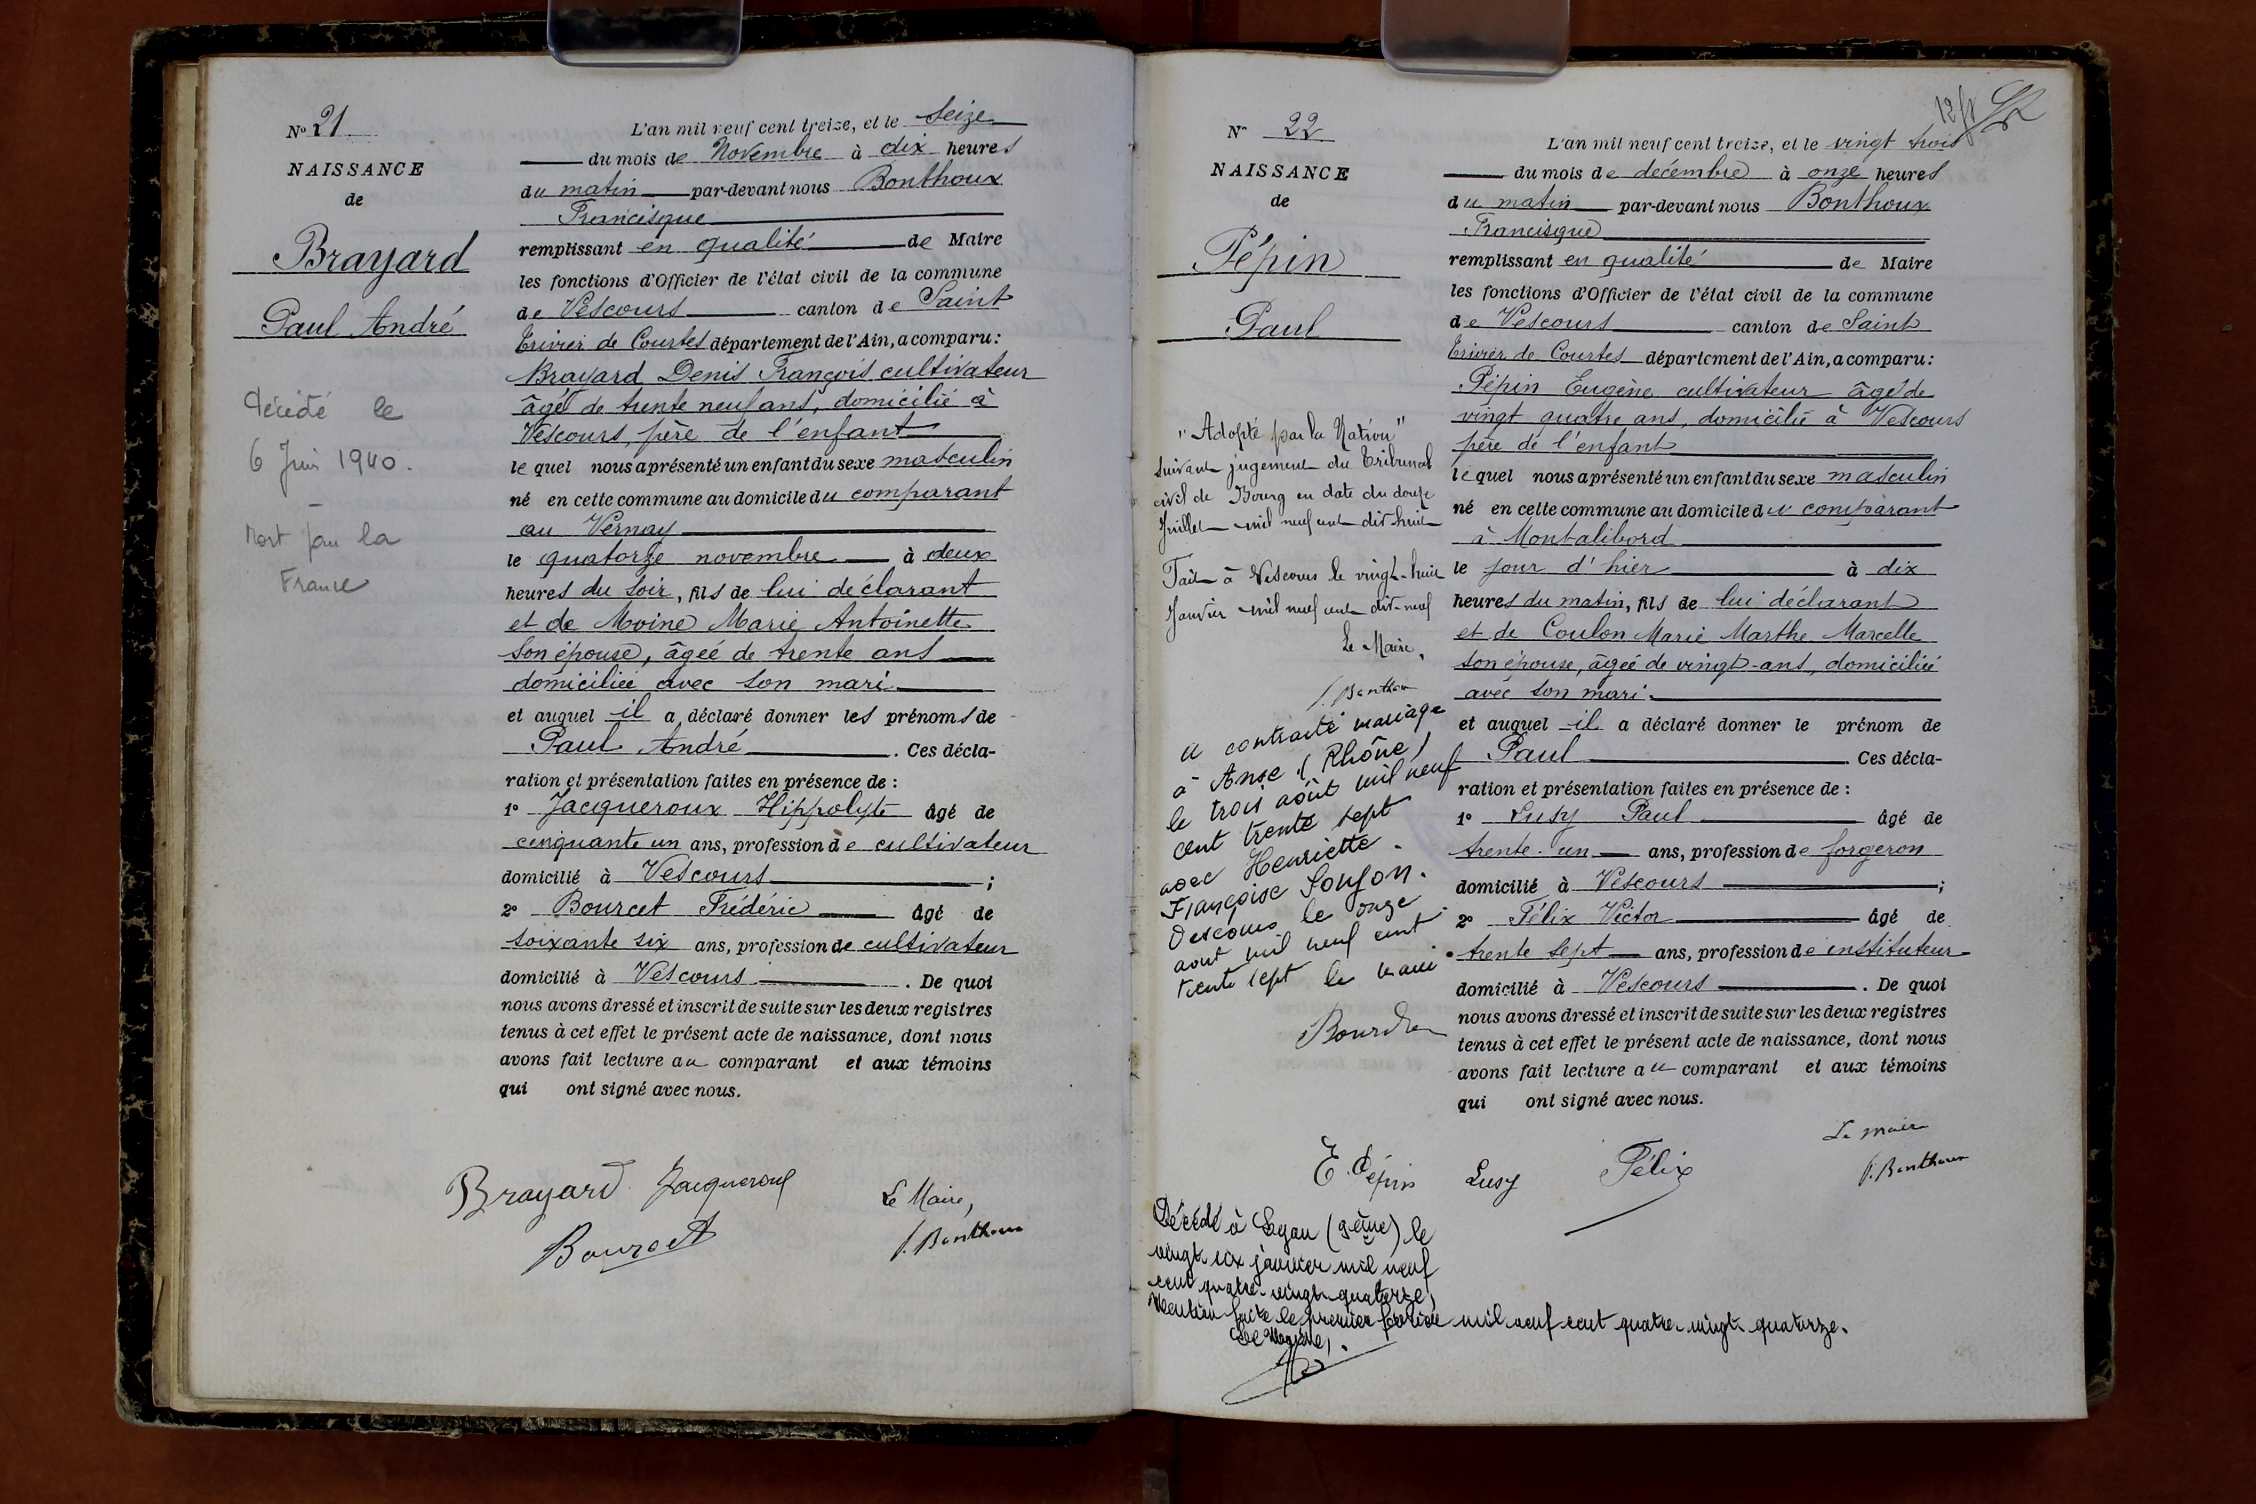 N° 21
NAISSANCE
de
Brayard
Paul André
Décédé le
6 Juin 1940.
Mort pour la
France
L'an mil neuf cent treize, et le Seize
du mois de Novembre à dix heures
du matin par-devant nous Bonthoux
Francisque
remplissant en qualité de Maire
les fonctions d'Officier de l'état civil de la commune
de Vescours canton de Saint
Trivier de Courtes département de l'Ain, a comparu :
Brayard Denis François cultivateur
âgé de trente neuf ans, domicilié à
Vescours, père de l'enfant
lequel nous a présenté un enfant du sexe masculin
né en cette commune au domicile du comparant
au Vernay
le quatorze novembre à deux
heures du soir, fils de lui déclarant
et de Moine Marie Antoinette
son épouse, âgée de trente ans
domiciliée avec son mari
et auquel il a déclaré donner les prénoms de
Paul André . Ces décla-
ration et présentation faites en présence de :
1° Jacqueroux Hippolyte âgé de
cinquante un ans, profession de cultivateur
domicilié à Vescours ;
2° Bourcet Frédéric âgé de
soixante six ans, profession de cultivateur
domicilié à Vescours . De quoi
nous avons dressé et inscrit de suite sur les deux registres
tenus à cet effet le présent acte de naissance, dont nous
avons fait lecture au comparant et aux témoins
qui ont signé avec nous.
Brayard Jacqueroux
Le Maire,
Bourcet
f. Bonthoux
N° 22
NAISSANCE
de
Pépin
Paul
"Adopté par la Nation"
suivant jugement du Tribunal
civil de Bourg en date du douze
Juillet mil neuf cent dix huit
Fait à Vescours le vingt-huit
Janvier mil neuf cent dix-neuf
Le Maire,
f. Bonthoux
a contracté mariage
à Anse (Rhône)
le trois août mil neuf
cent trente sept
avec Henriette
Françoise
Vescours le onze
aout mil neuf cent
trente sept le maire
12 f
L'an mil neuf cent treize, et le vingt trois
du mois de décembre à onze heures
du matin par-devant nous Bonthoux
Francisque
remplissant en qualité de Maire
les fonctions d'Officier de l'état civil de la commune
de Vescours canton de Saint
Trivier de Courtes département de l'Ain, a comparu :
Pépin Eugène cultivateur âgé de
vingt quatre ans, domicilié à Vescours
père de l'enfant
lequel nous a présenté un enfant du sexe masculin
né en cette commune au domicile du comparant
à Montalibord
le jour d'hier à dix
heures du matin, fils de lui déclarant
et de Coulon Marie Marthe Marcelle
son épouse, âgée de vingt-ans, domiciliée
avec son mari.
et auquel il a déclaré donner le prénom de
Paul . Ces décla-
ration et présentation faites en présence de :
1° Lusy Paul âgé de
trente-un ans, profession de forgeron
domicilié à Vescours ;
2° Félix Victor âgé de
trente sept ans, profession de instituteur
domicilié à Vescours . De quoi
nous avons dressé et inscrit de suite sur les deux registres
tenus à cet effet le présent acte de naissance, dont nous
avons fait lecture au comparant et aux témoins
qui ont signé avec nous.
Le maire
E. Pépin Lusy Félix f. Bonthoux
Décédé à Lyon (9ème) le
vingt six janvier mil neuf
cent quatre-vingt-quatorze,
Mention faite le premier février mil neuf cent quatre-vingt-quatorze.
Le Maire,